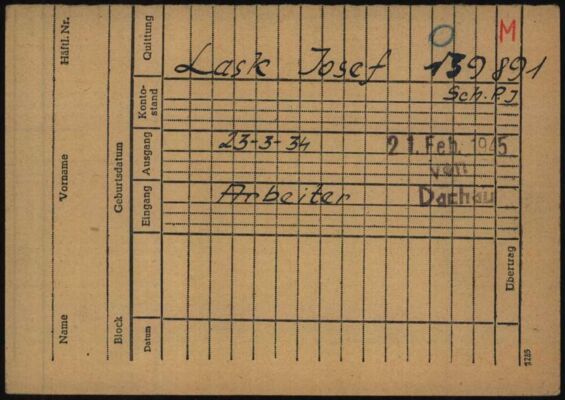 O M
Lask Josef 139891
Sch. P. J
23-3-34
21. Feb. 1945
von
Dachau
Arbeiter
Name Vorname Häftl. Nr.
Block Geburtsdatum
Datum Eingang Ausgang Konto-stand Quittung
Übertrag